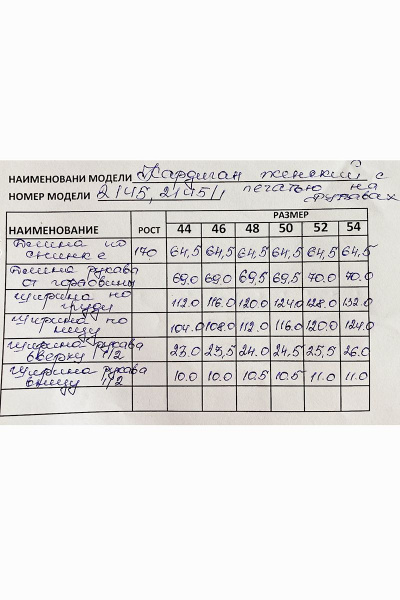 НАИМЕНОВАНИ МОДЕЛИ Кардиган женский с
НОМЕР МОДЕЛИ 2145, 2145/1 печатью на
рукавах
НАИМЕНОВАНИЕ РОСТ РАЗМЕР
44 46 48 50 52 54
Длина по
спинке 170 64,5 64,5 64,5 64,5 64,5 64,5
Длина рукава
от горловины 69.0 69.0 69,5 69,5 70.0 70.0
Ширина по
груди 112.0 116.0 120.0 124.0 128.0 132.0
Ширина по
низу 104.0 108.0 112.0 116.0 120.0 124.0
Ширина рукава
вверху 1/2 23.0 23,5 24.0 24,5 25,5 26.0
Ширина рукава
внизу 1/2 10.0 10.0 10.5 10.5 11.0 11.0